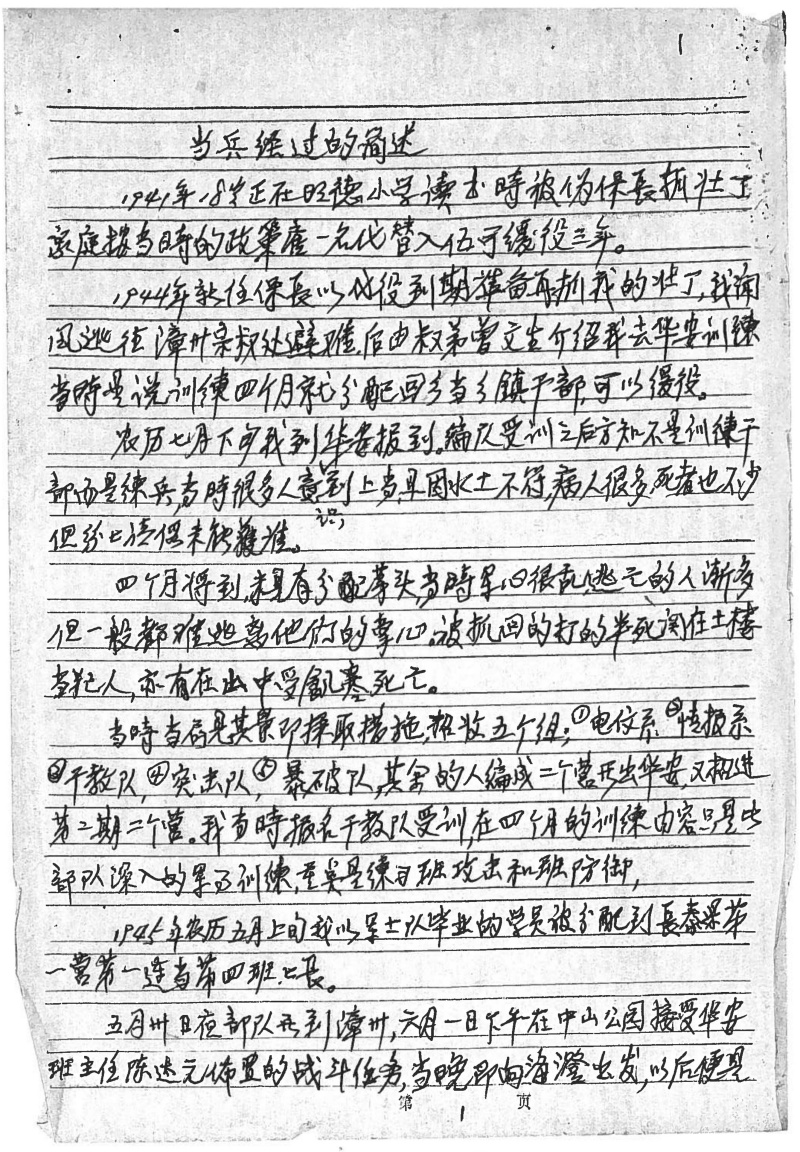 1
当兵经过的简述
1941年18岁正在旺德小学读书時被伪保長抓壮丁
家庭按当時的政策雇一名代替入伍可缓役三年。
1944年新任保長以代役到期準备再抓我的壮丁,我闻
风逃往漳州亲叔处避难,后由叔弟曾文生介绍我去华安训練
当時是说训練四个月就分配回乡当乡鎮干部,可以缓役。
农历七月下旬我到华安报到。编队受训之后方知不是训練干
部而是練兵,当時很多人意識到上当,且因水土不符,病人很多,死者也不少
但纷纷请假未能獲准。
四个月将到,未見有分配苗头,当時军心很乱,逃亡的人渐多
但一般都难逃离他们的掌心,被抓回的打的半死关在土樓
当犯人,亦有在山中受飢寒死亡。
当時当局見其景即採取措施,招收五个组;①电仪系②情报系
③干教队,④突击队,⑤暴破队,其余的人编成二个营开出华安,又招进
第二期二个营。我当時报名干教队受训,在四个月的训練内容只是比
部队深入的軍事训練,主要是練习班攻击和班防御,
1945年农历五月上旬我以军士队毕业的学员被分配到長泰果第
一营第一连当第四班班長。
五月卅日夜部队开到漳州,六月一日下午在中山公园接受华安
班主任陈达元佈置的战斗任务,当晚即向海澄出发,以后便是
第 1 页